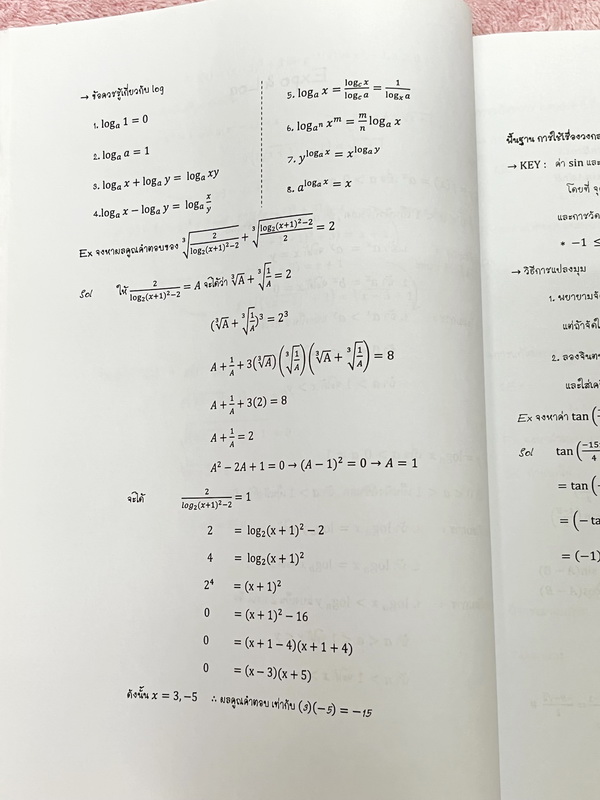 → ข้อควรรู้เกี่ยวกับ log
1. logₐ 1 = 0
2. logₐ a = 1
3. logₐ x + logₐ y = logₐ xy
4. logₐ x − logₐ y = logₐ x/y
5. logₐ x = log_c x / log_c a = 1 / logₓ a
6. log_{aⁿ} xᵐ = m/n logₐ x
7. y^{logₐ x} = x^{logₐ y}
8. a^{logₐ x} = x
Ex จงหาผลคูณคำตอบของ ∛(2/(log₂(x+1)²−2)) + ∛((log₂(x+1)²−2)/2) = 2
Sol ให้ 2/(log₂(x+1)²−2) = A จะได้ว่า ∛A + ∛(1/A) = 2
(∛A + ∛(1/A))³ = 2³
A + 1/A + 3(∛A)(∛(1/A))(∛A + ∛(1/A)) = 8
A + 1/A + 3(2) = 8
A + 1/A = 2
A² − 2A + 1 = 0 → (A − 1)² = 0 → A = 1
จะได้ 2/(log₂(x+1)²−2) = 1
2 = log₂(x + 1)² − 2
4 = log₂(x + 1)²
2⁴ = (x + 1)²
0 = (x + 1)² − 16
0 = (x + 1 − 4)(x + 1 + 4)
0 = (x − 3)(x + 5)
ดังนั้น x = 3, −5 ∴ ผลคูณคำตอบ เท่ากับ (3)(−5) = −15
พื้นฐาน การใช้เรื่องวงกล
→ KEY : ค่า sin และ
โดยที่ จุ
และการวัด
* −1 ≤
→ วิธีการแปลงมุม
1. พยายามจัด
แต่ถ้าจัดไ
2. ลองจินต
และใส่เค
Ex จงหาค่า tan(
Sol tan(−15/4
= tan(−
= (− ta
= (−1)